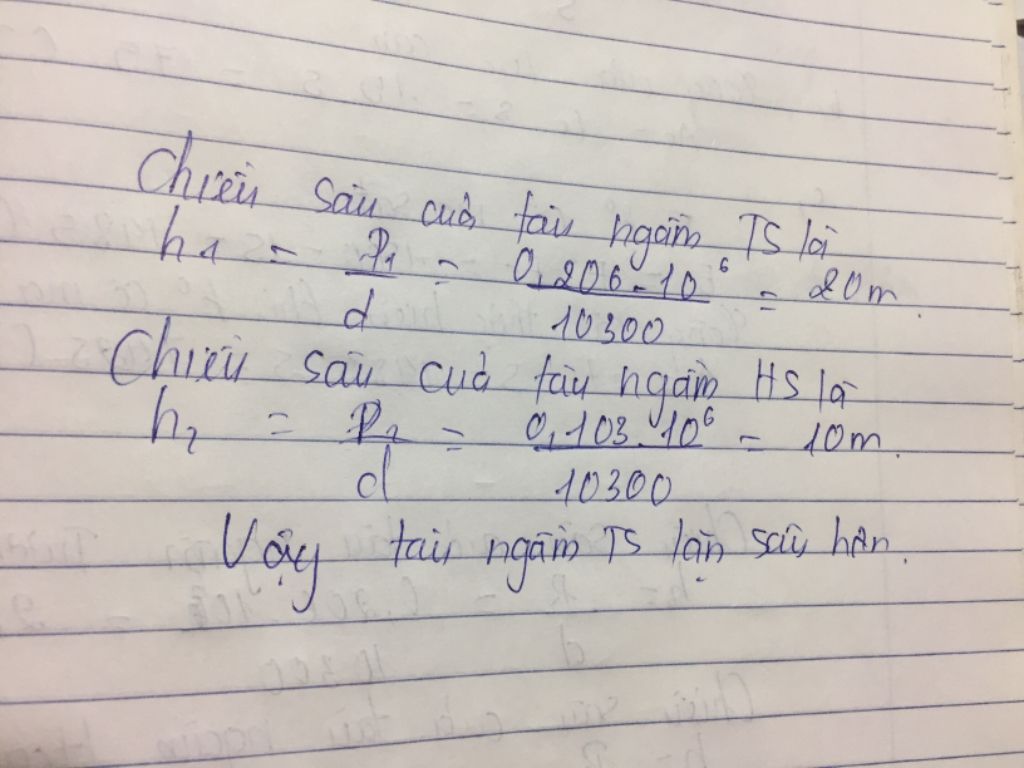 Chiều sâu của tàu ngầm TS là
h₁ = P₁/d = 0,206.10⁶/10300 = 20m.
Chiều sâu của tàu ngầm HS là
h₂ = P₂/d = 0,103.10⁶/10300 = 10m.
Vậy tàu ngầm TS lặn sâu hơn.